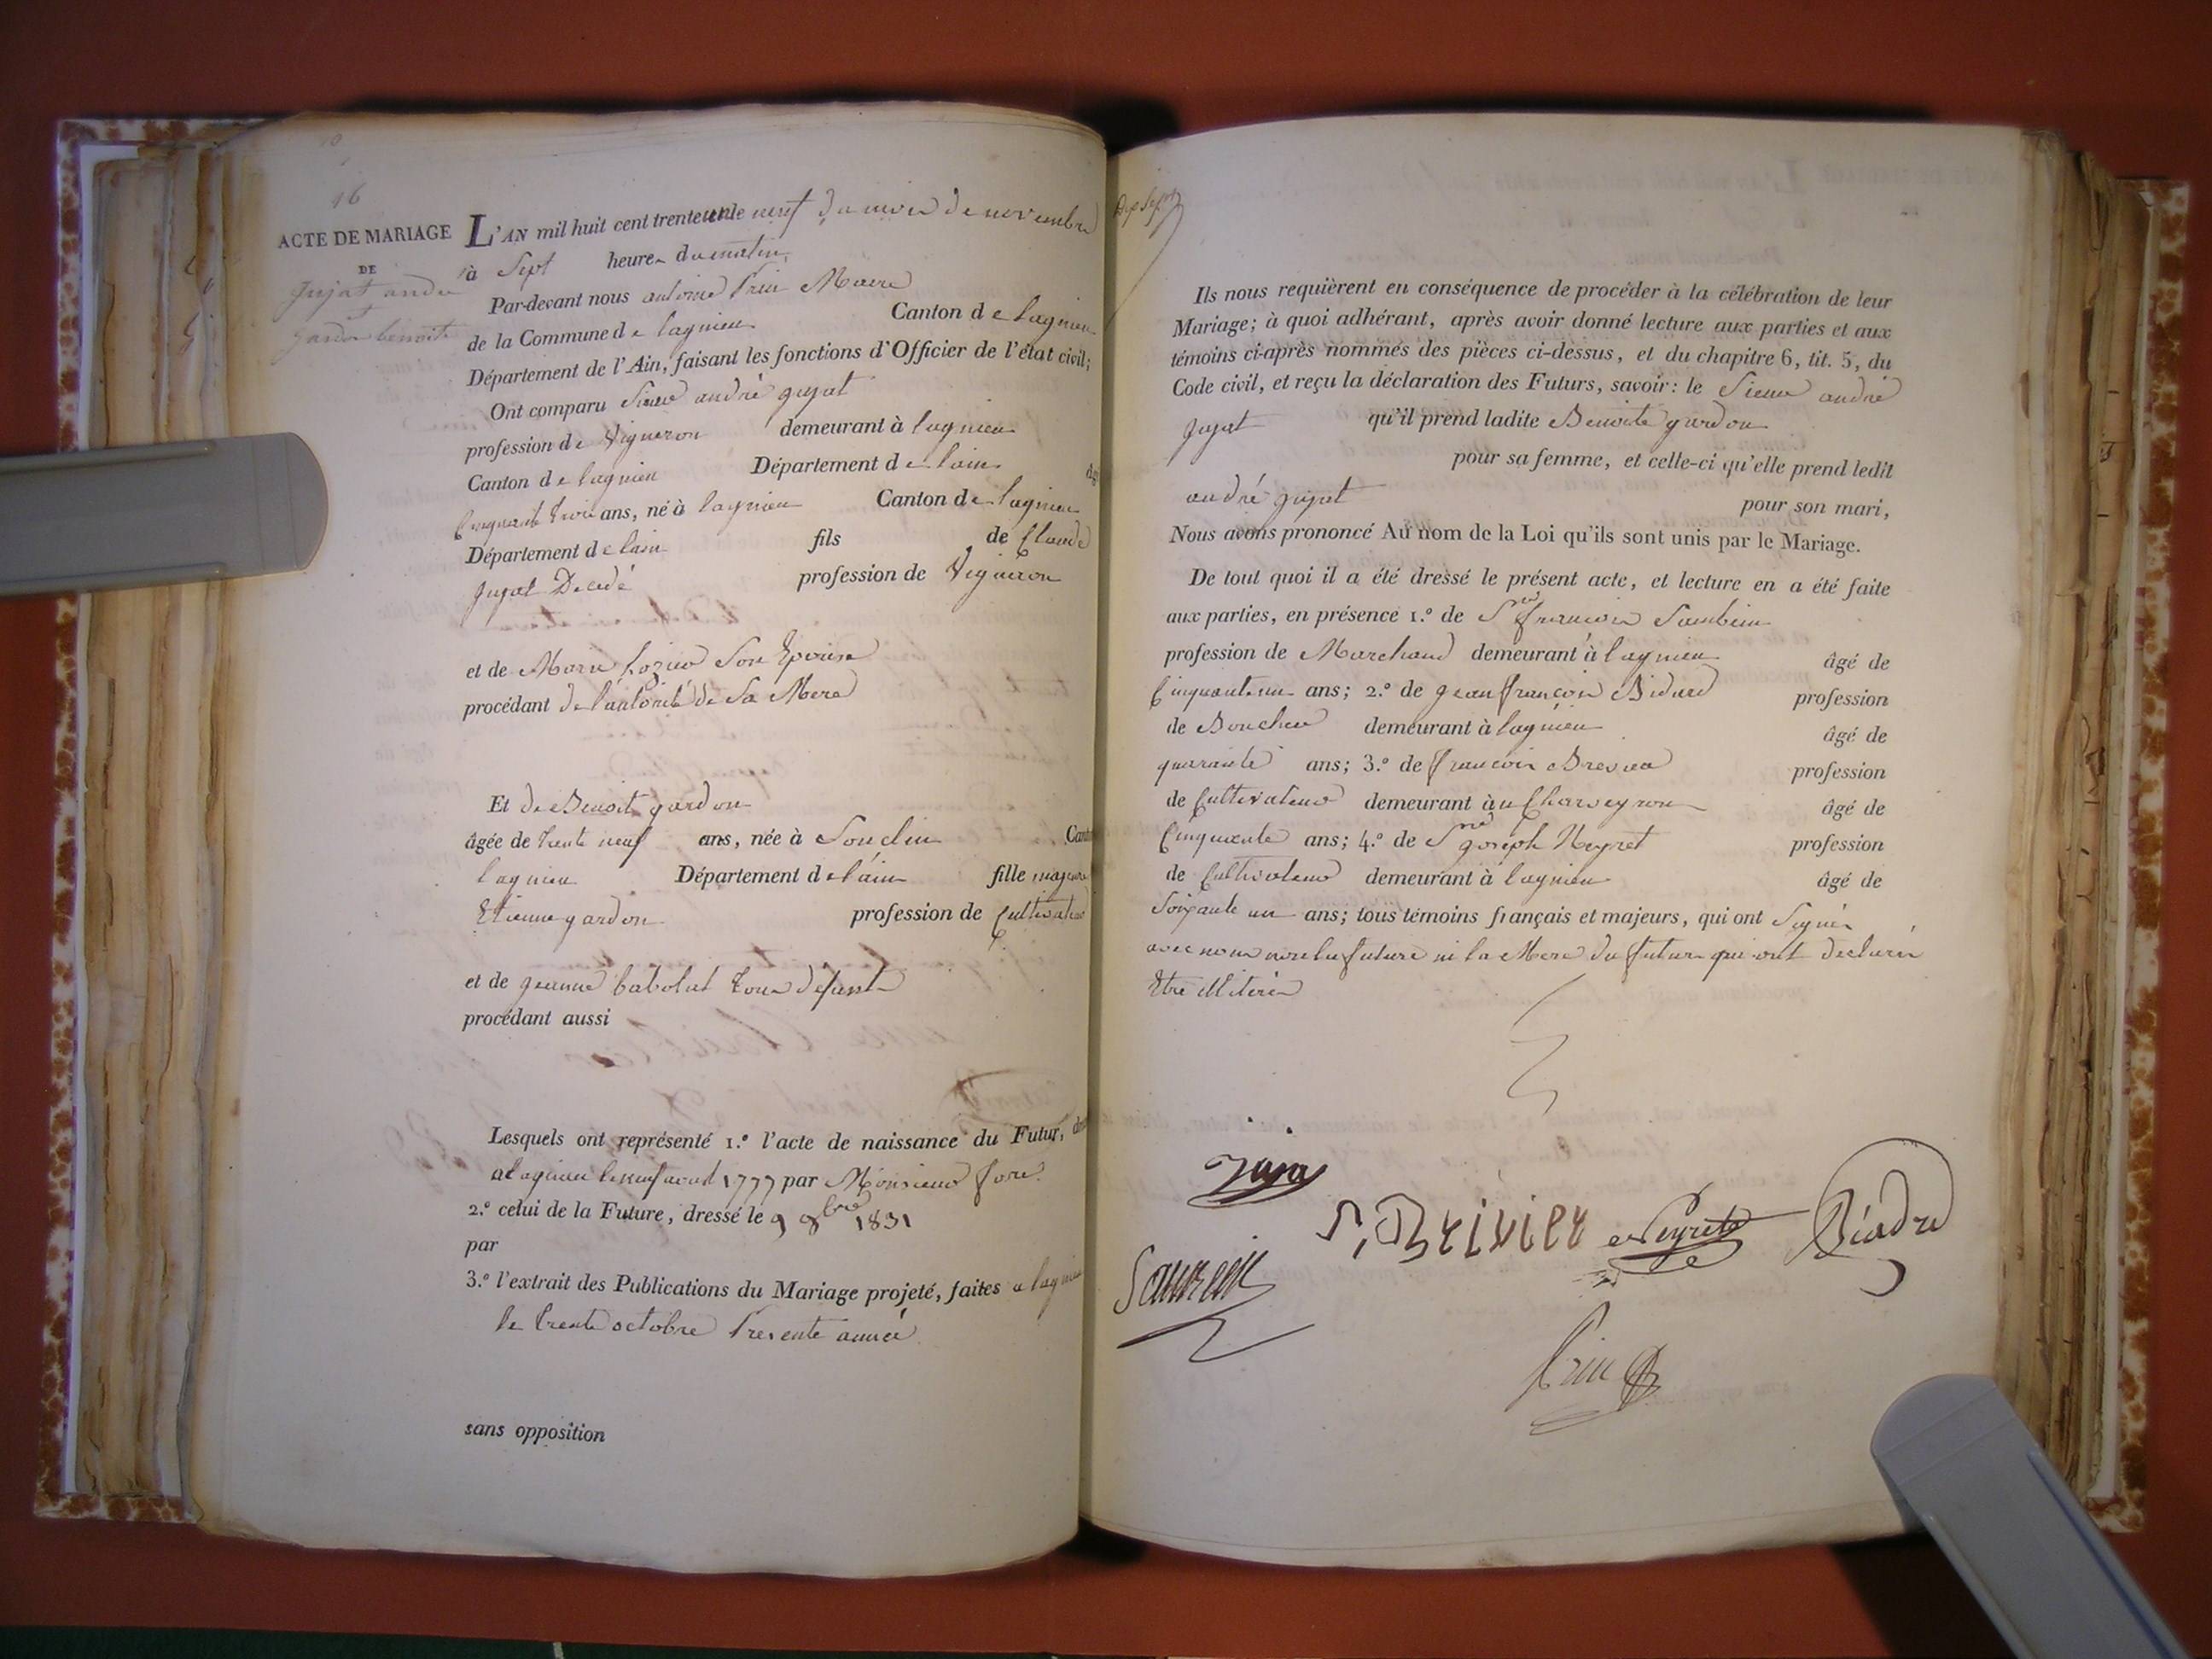 16
ACTE DE MARIAGE
DE
Jujat andré
et
gardon benoite
L'AN mil huit cent trente un le neuf du mois de novembre
à Sept heures du matin,
Par-devant nous antoine Maire
de la Commune de lagnieu Canton de lagnieu
Département de l'Ain, faisant les fonctions d'Officier de l'état civil;
Ont comparu Sieur andré jujat
profession de Vigneron demeurant à lagnieu
Canton de lagnieu Département de lain
Cinquante trois ans, né à lagnieu Canton de lagnieu
Département de lain fils de Claude
Jujat Decedé profession de Vigneron
et de Marie Son Epouse
procédant de l'autorité de Sa Mere
Et de Benoite gardon
âgée de trente neuf ans, née à Souclin Cant
lagnieu Département de l'ain fille majeure
Etienne gardon profession de Cultivateur
et de jeanne babolat tous défunts
procédant aussi
Lesquels ont représenté 1.º l'acte de naissance du Futur,
a lagnieu le neuf aout 1777 par Monsieur
2.º celui de la Future, dressé le 9 8bre 1831
par
3.º l'extrait des Publications du Mariage projeté, faites a lagnieu
le trente octobre Presente année
sans opposition
Dix Sept
Ils nous requièrent en conséquence de procéder à la célébration de leur
Mariage; à quoi adhérant, après avoir donné lecture aux parties et aux
témoins ci-après nommés des pièces ci-dessus, et du chapitre 6, tit. 5, du
Code civil, et reçu la déclaration des Futurs, savoir: le Sieur andré
jujat qu'il prend ladite Benoite gardon
pour sa femme, et celle-ci qu'elle prend ledit
andré jujat pour son mari,
Nous avons prononcé Au nom de la Loi qu'ils sont unis par le Mariage.
De tout quoi il a été dressé le présent acte, et lecture en a été faite
aux parties, en présence 1.º de Sr françois
profession de Marchand demeurant à lagnieu âgé de
Cinquante un ans; 2.º de jean françois profession
de Boucher demeurant à lagnieu âgé de
quarante ans; 3.º de françois profession
de Cultivateur demeurant à u Charveyron âgé de
Cinquante ans; 4.º de Sr joseph Neyret profession
de Cultivateur demeurant à lagnieu âgé de
Soixante un ans; tous témoins français et majeurs, qui ont Signés
avec nous non la future ni la Mere du futur qui ont declarés
Etre illiterés